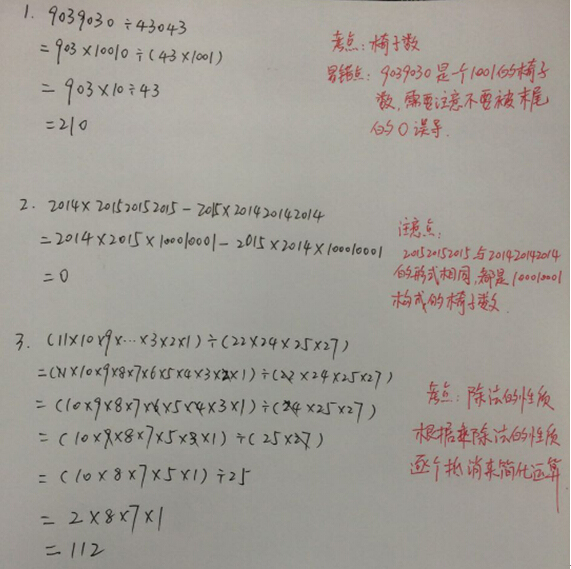 1. 9039030÷43043
=903×10010÷(43×1001)
=903×10÷43
=210
考点：椅子数
易错点：9039030是个1001的椅子
数，需要注意不要被末尾
的0误导.
2. 2014×201520152015－2015×201420142014
=2014×2015×100010001－2015×2014×100010001
=0
注意点：
201520152015与201420142014
的形式相同，都是100010001
构成的椅子数.
3. (11×10×9×…×3×2×1)÷(22×24×25×27)
=(11×10×9×8×7×6×5×4×3×2×1)÷(22×24×25×27)
=(10×9×8×7×6×5×4×3×1)÷(24×25×27)
=(10×9×8×7×5×3×1)÷(25×27)
=(10×8×7×5×1)÷25
=2×8×7×1
=112
考点：除法的性质
根据乘除法的性质
逐个抵消来简化运算